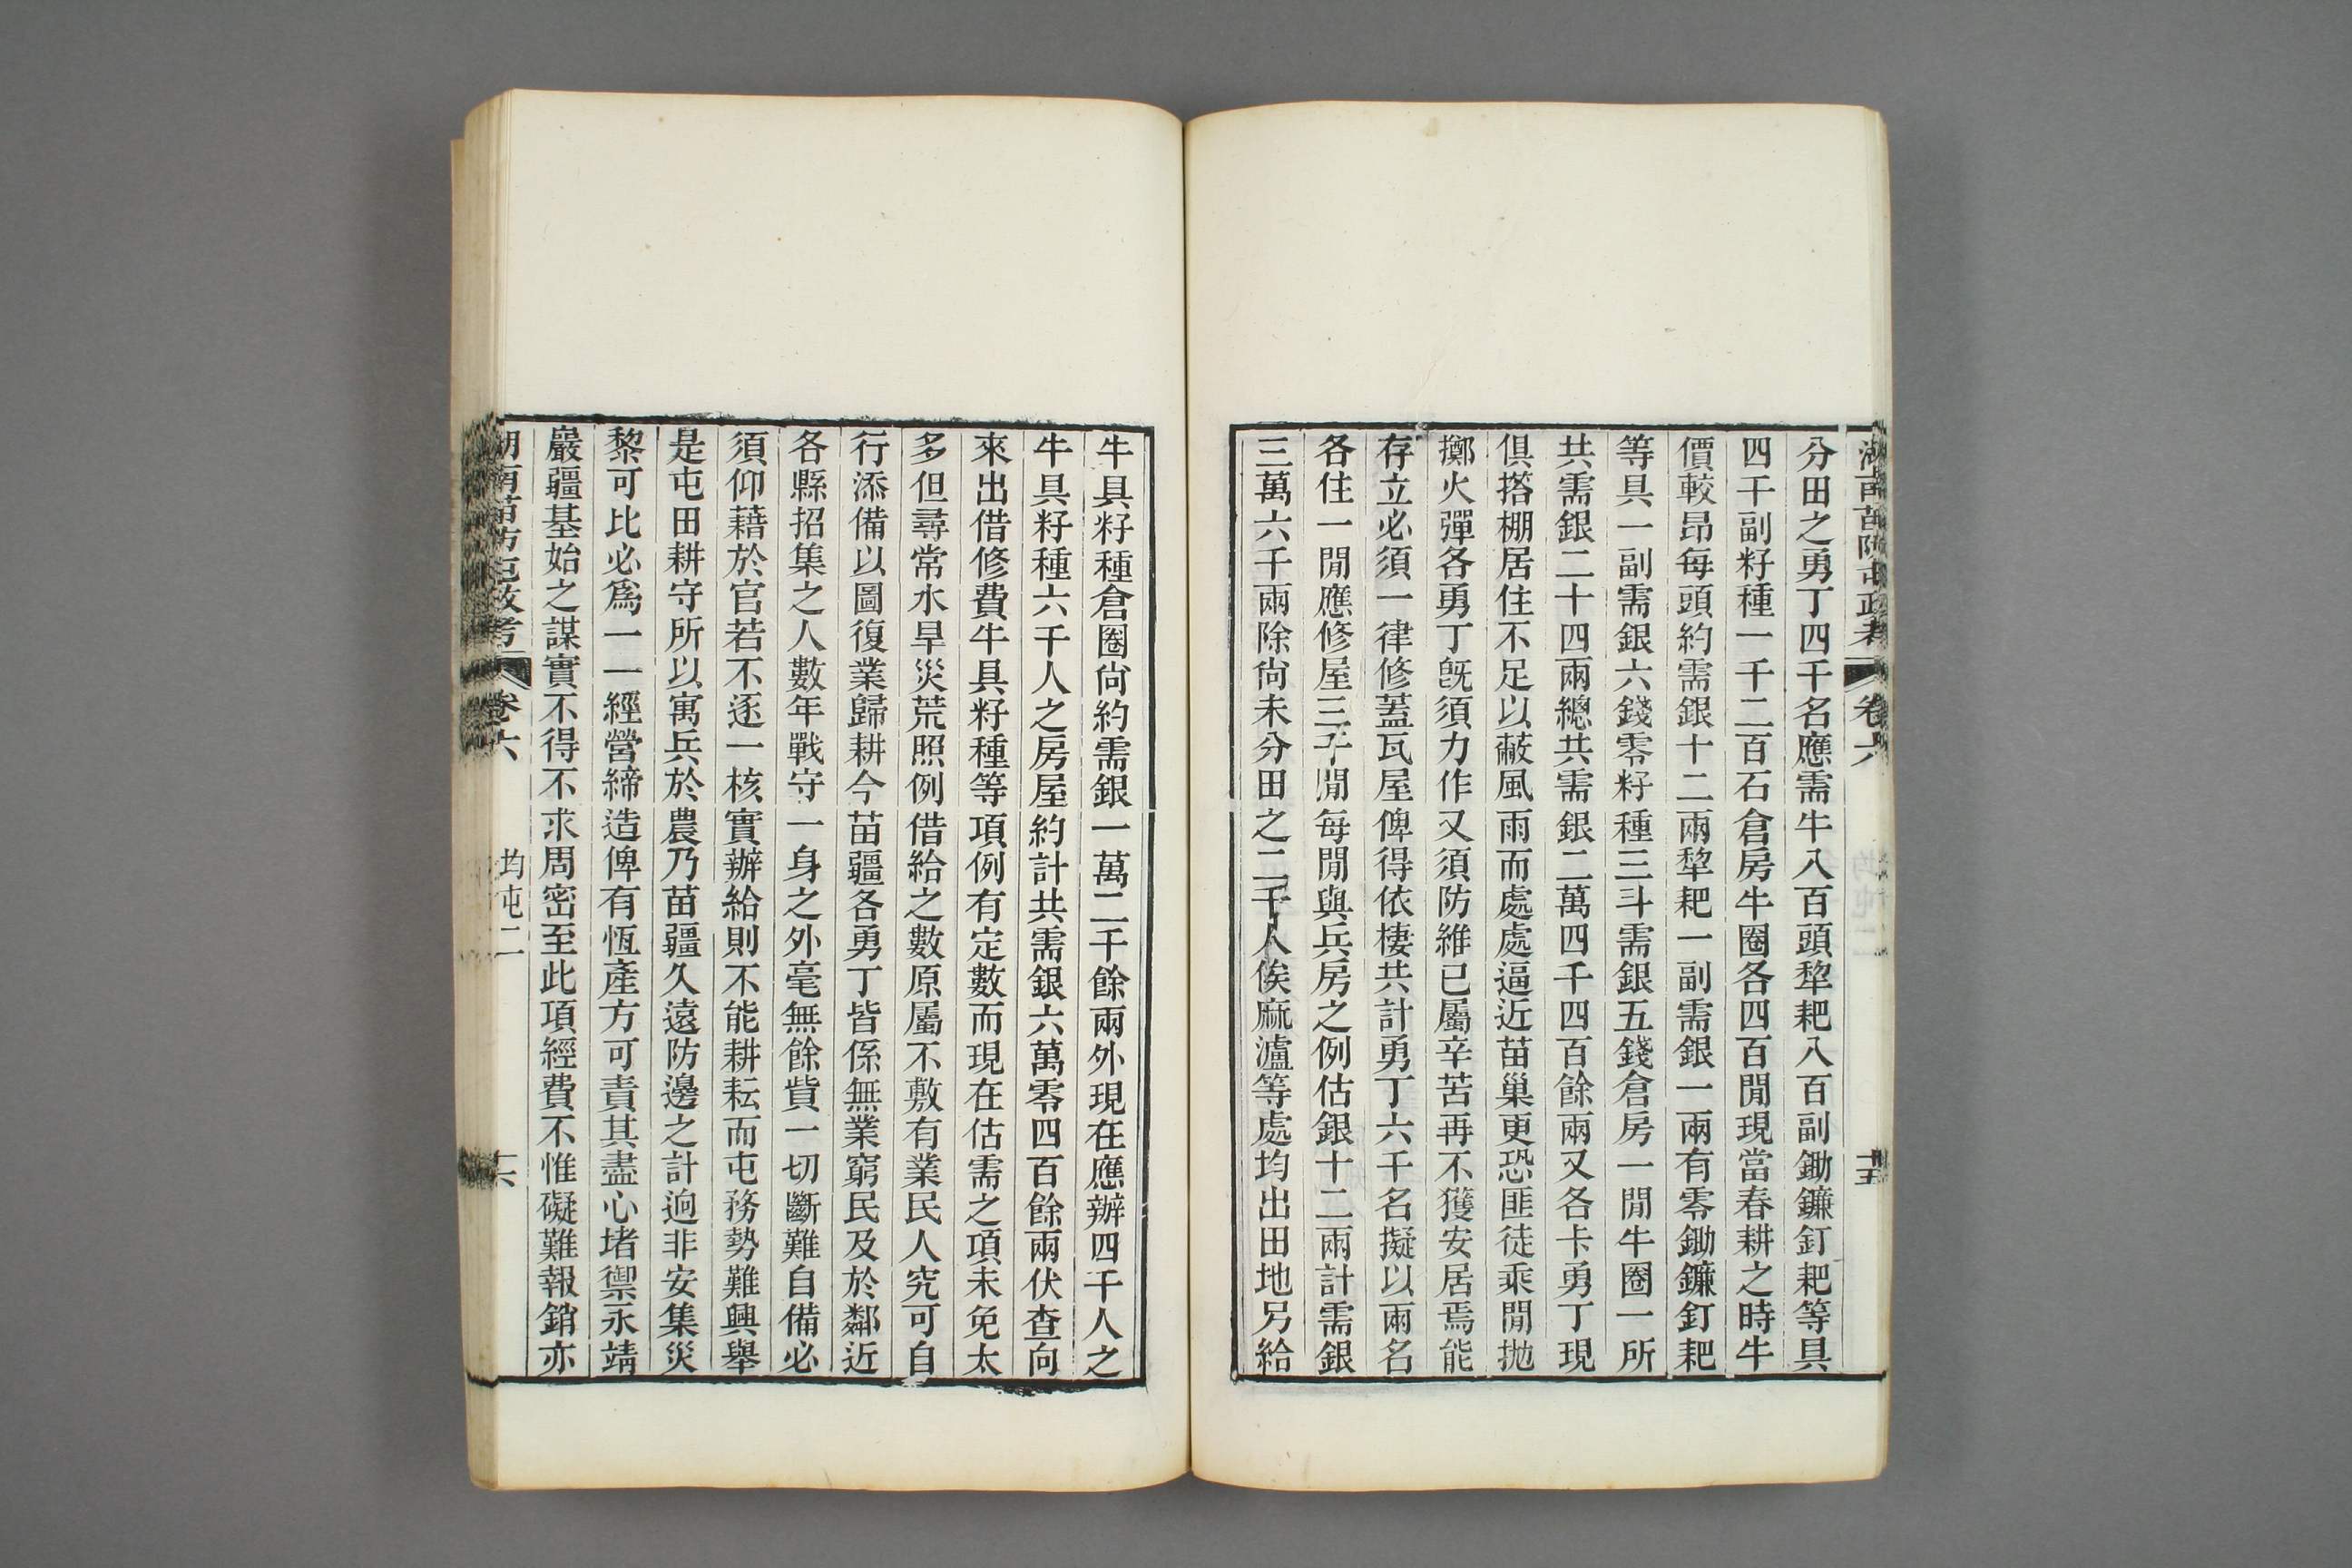 湖南苗防屯政考 卷六 十五
分田之勇丁四千名應需牛八百頭犂耙八百副鋤鐮釘耙等具
四千副籽種一千二百石倉房牛圈各四百閒現當春耕之時牛
價較昂每頭約需銀十二兩犂耙一副需銀一兩有零鋤鐮釘耙
等具一副需銀六錢零籽種三斗需銀五錢倉房一閒牛圈一所
共需銀二十四兩總共需銀二萬四千四百餘兩又各卡勇丁現
俱搭棚居住不足以蔽風雨而處處逼近苗巢更恐匪徒乘閒拋
擲火彈各勇丁旣須力作又須防維已屬辛苦再不獲安居焉能
存立必須一律修蓋瓦屋俾得依棲共計勇丁六千名擬以兩名
各住一閒應修屋三千閒每閒與兵房之例估銀十二兩計需銀
三萬六千兩除尙未分田之二千人俟麻瀘等處均出田地另給
牛具籽種倉圈尙約需銀一萬二千餘兩外現在應辦四千人之
牛具籽種六千人之房屋約計共需銀六萬零四百餘兩伏查向
來出借修費牛具籽種等項例有定數而現在估需之項未免太
多但尋常水旱災荒照例借給之數原屬不敷有業民人究可自
行添備以圖復業歸耕今苗疆各勇丁皆係無業窮民及於鄰近
各縣招集之人數年戰守一身之外毫無餘貲一切斷難自備必
須仰藉於官若不逐一核實辦給則不能耕耘而屯務勢難興舉
是屯田耕守所以寓兵於農乃苗疆久遠防邊之計逈非安集災
黎可比必爲一一經營締造俾有恆產方可責其盡心堵禦永靖
嚴疆基始之謀實不得不求周密至此項經費不惟礙難報銷亦
湖南苗防屯政考 卷六 均屯二 十六